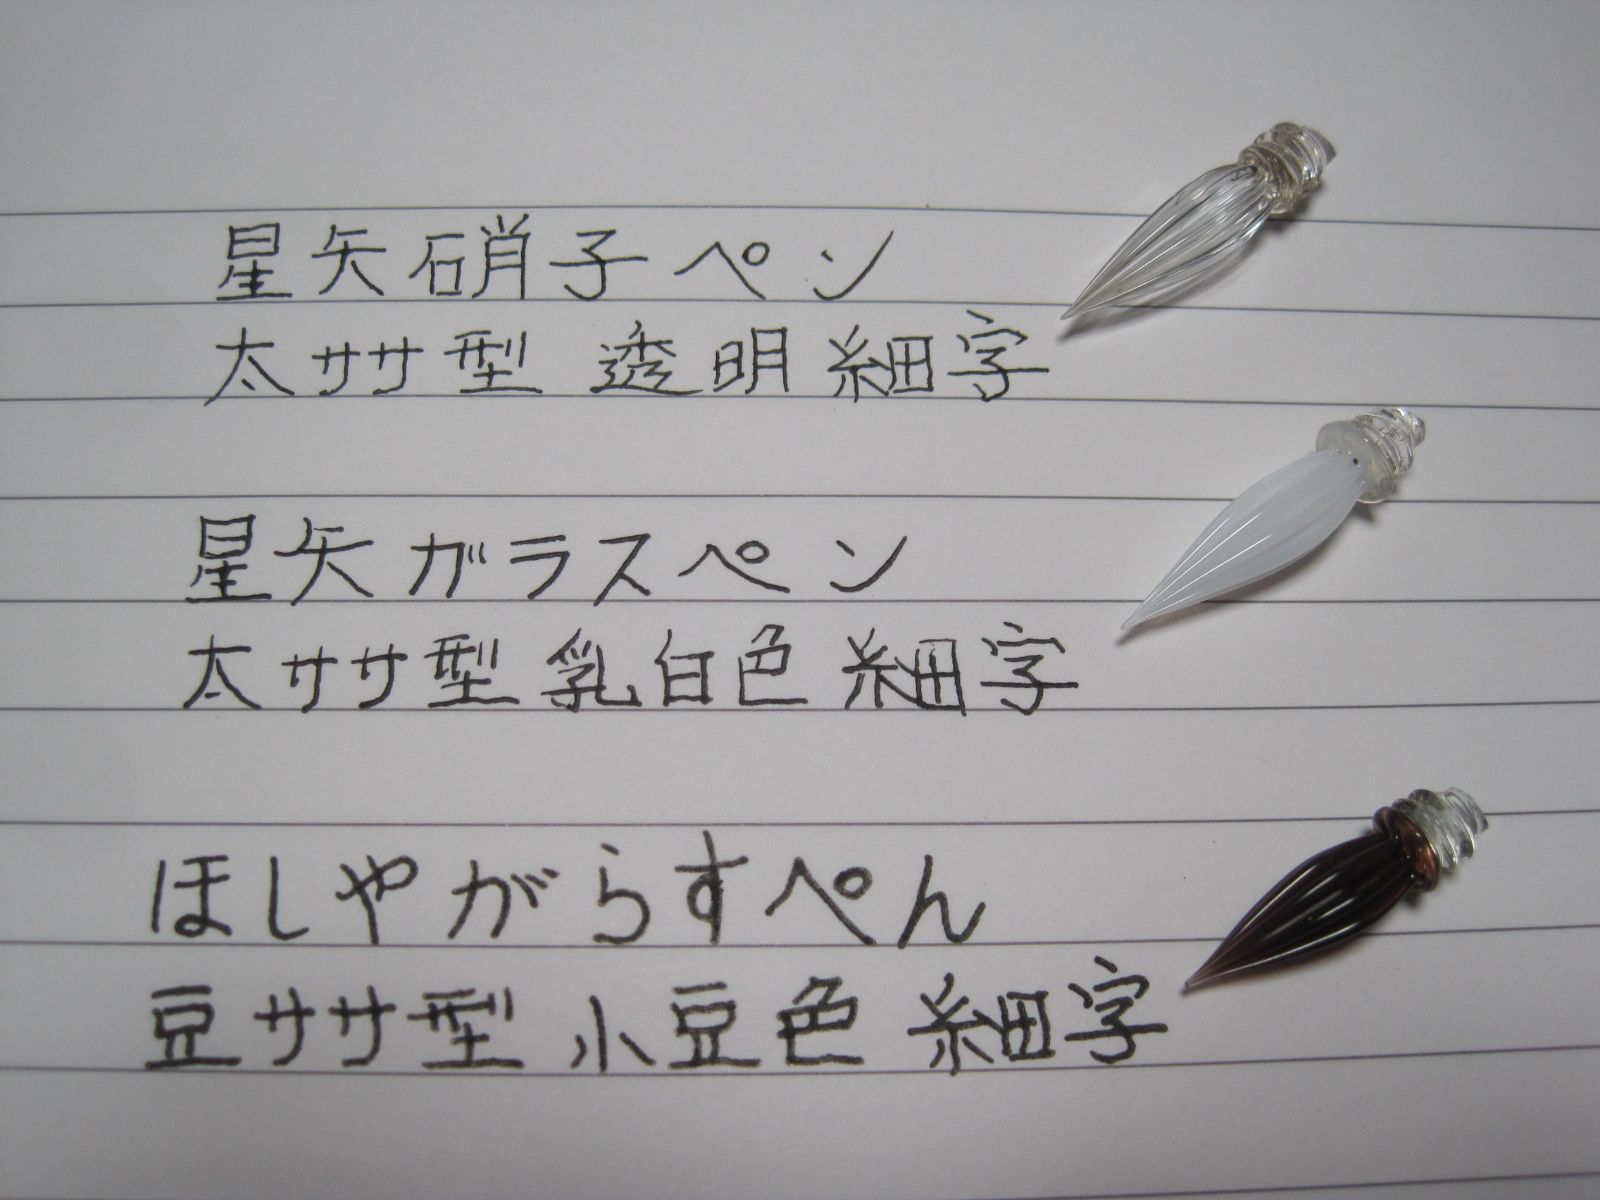 星矢硝子ペン
太ササ型 透明 細字
星矢ガラスペン
太ササ型 乳白色 細字
ほしやがらすぺん
豆ササ型 小豆色 細字